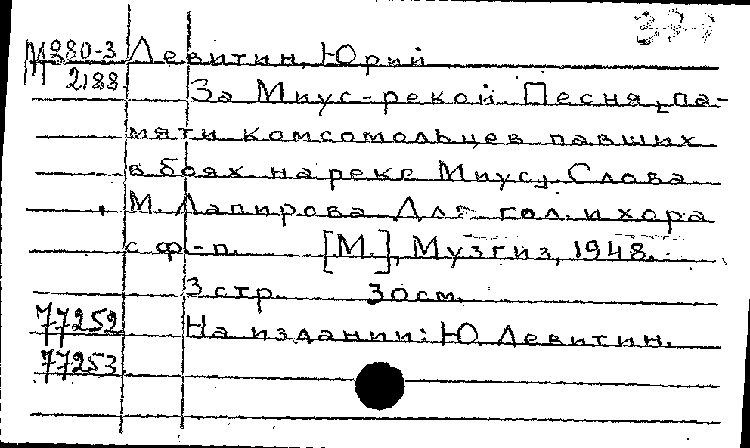 М 280-3 Левитин, Юрий
2188 За Миус-рекой. Песня, па-
мяти комсомольцев павших
в боях на реке Миус, Слова
М. Лапирова Для гол. и хора
с ф-п. [М.], Музгиз, 1948.
3 стр. 30 см.
77252 На издании: Ю. Левитин.
77253